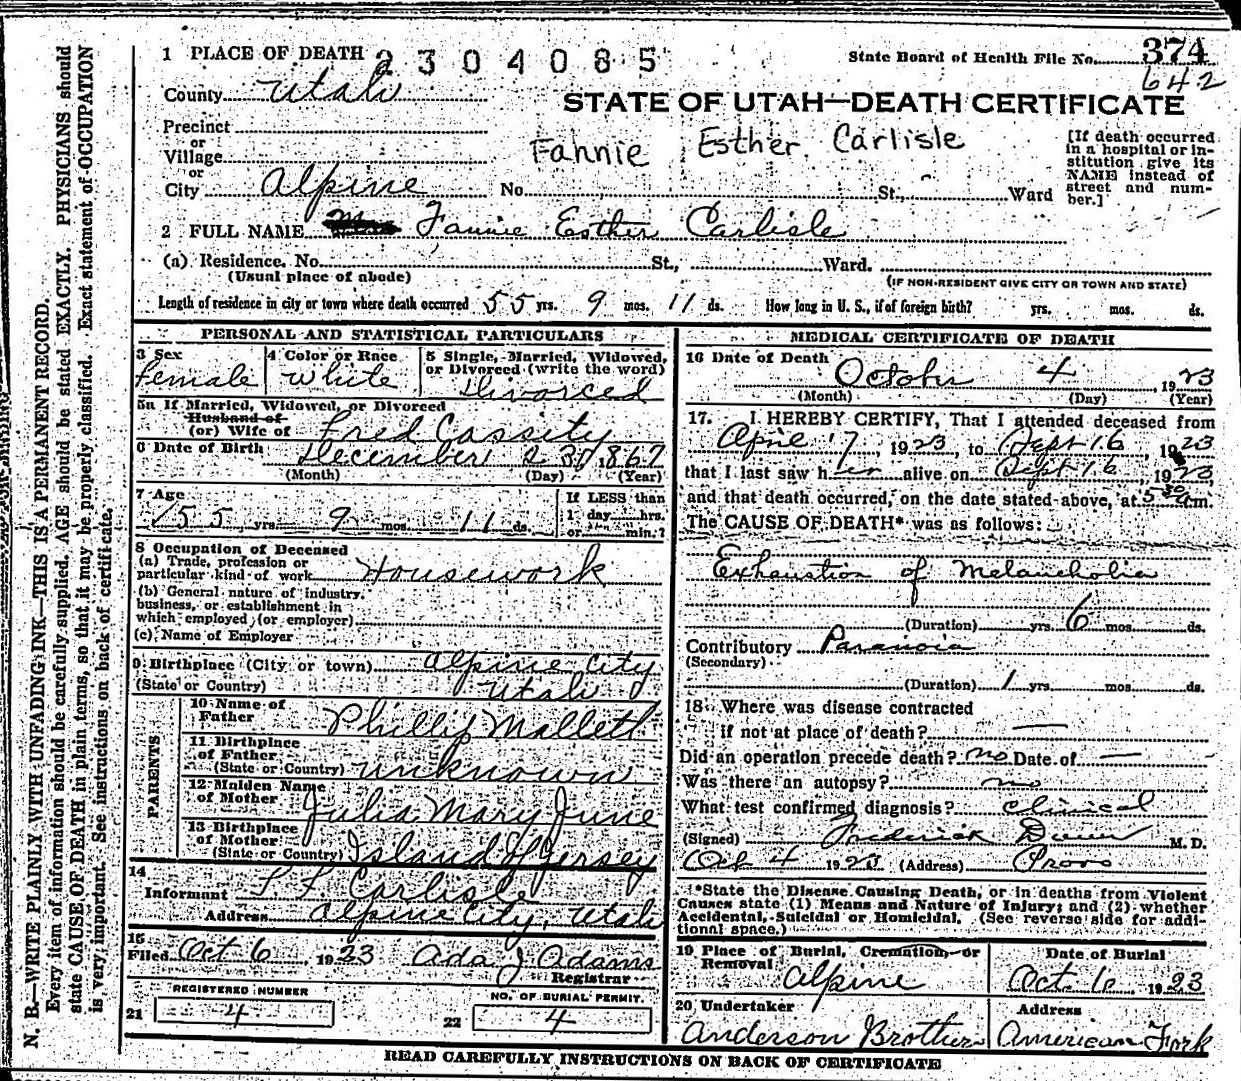 1 PLACE OF DEATH 2304085
State Board of Health File No. 374
642
County Utah
STATE OF UTAH—DEATH CERTIFICATE
Precinct
or
Village
Fannie Esther Carlisle
[If death occurred
in a hospital or in-
stitution give its
NAME instead of
street and num-
ber.]
or
City Alpine No. St., Ward
2 FULL NAME Fannie Esther Carlisle
(a) Residence. No. St., Ward.
(Usual place of abode) (IF NON-RESIDENT GIVE CITY OR TOWN AND STATE)
Length of residence in city or town where death occurred 55 yrs. 9 mos. 11 ds. How long in U. S., if of foreign birth? yrs. mos. ds.
PERSONAL AND STATISTICAL PARTICULARS
3 Sex
Female
4 Color or Race
White
5 Single, Married, Widowed,
or Divorced (write the word)
Divorced
5a If Married, Widowed, or Divorced
Husband of
(or) Wife of Fred Cassity
6 Date of Birth December 23 1867
(Month) (Day) (Year)
7 Age
55 yrs. 9 mos. 11 ds.
If LESS than
1 day hrs.
or min.?
8 Occupation of Deceased
(a) Trade, profession or
particular kind of work Housework
(b) General nature of industry,
business, or establishment in
which employed (or employer)
(c) Name of Employer
9 Birthplace (City or town) Alpine City
(State or Country) Utah
PARENTS
10 Name of
Father Phillip Mallett
11 Birthplace
of Father
(State or Country) unknown
12 Maiden Name
of Mother Julia Mary June
13 Birthplace
of Mother
(State or Country) Island of Jersey
14
Informant Carlisle
Address Alpine City, Utah
15
Filed Oct 6 1923 Ada J Adams
Registrar
REGISTERED NUMBER
21 4
NO. OF BURIAL PERMIT.
22 4
MEDICAL CERTIFICATE OF DEATH
16 Date of Death
October 4 1923
(Month) (Day) (Year)
17. I HEREBY CERTIFY, That I attended deceased from
April 7, 1923, to Sept 16, 1923
that I last saw her alive on Sept 16, 1923,
and that death occurred, on the date stated above, at 5 30 m.
The CAUSE OF DEATH* was as follows:
Exhaustion of Melancholia
(Duration) yrs. 6 mos. ds.
Contributory Paranoia
(Secondary)
(Duration) 1 yrs. mos. ds.
18 Where was disease contracted
if not at place of death? —
Did an operation precede death? no Date of —
Was there an autopsy? no
What test confirmed diagnosis? clinical
(Signed) Frederick M. D.
Oct 4 1923 (Address) Provo
*State the Disease Causing Death, or in deaths from Violent
Causes state (1) Means and Nature of Injury; and (2) whether
Accidental, Suicidal or Homicidal. (See reverse side for addi-
tional space.)
19 Place of Burial, Cremation, or
Removal Alpine
Date of Burial
Oct. 6 1923
20 Undertaker
Anderson Brothers
Address
American Fork
READ CAREFULLY INSTRUCTIONS ON BACK OF CERTIFICATE
N. B.—WRITE PLAINLY WITH UNFADING INK—THIS IS A PERMANENT RECORD.
Every item of information should be carefully supplied. AGE should be stated EXACTLY. PHYSICIANS should
state CAUSE OF DEATH in plain terms, so that it may be properly classified. Exact statement of OCCUPATION
is very important. See instructions on back of certificate.